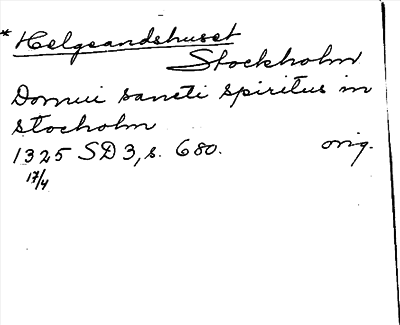 * Helgeandshuset
Stockholm
Domui sancti spiritus in
stocholm
1325 SD 3, s. 680. orig.
17/4